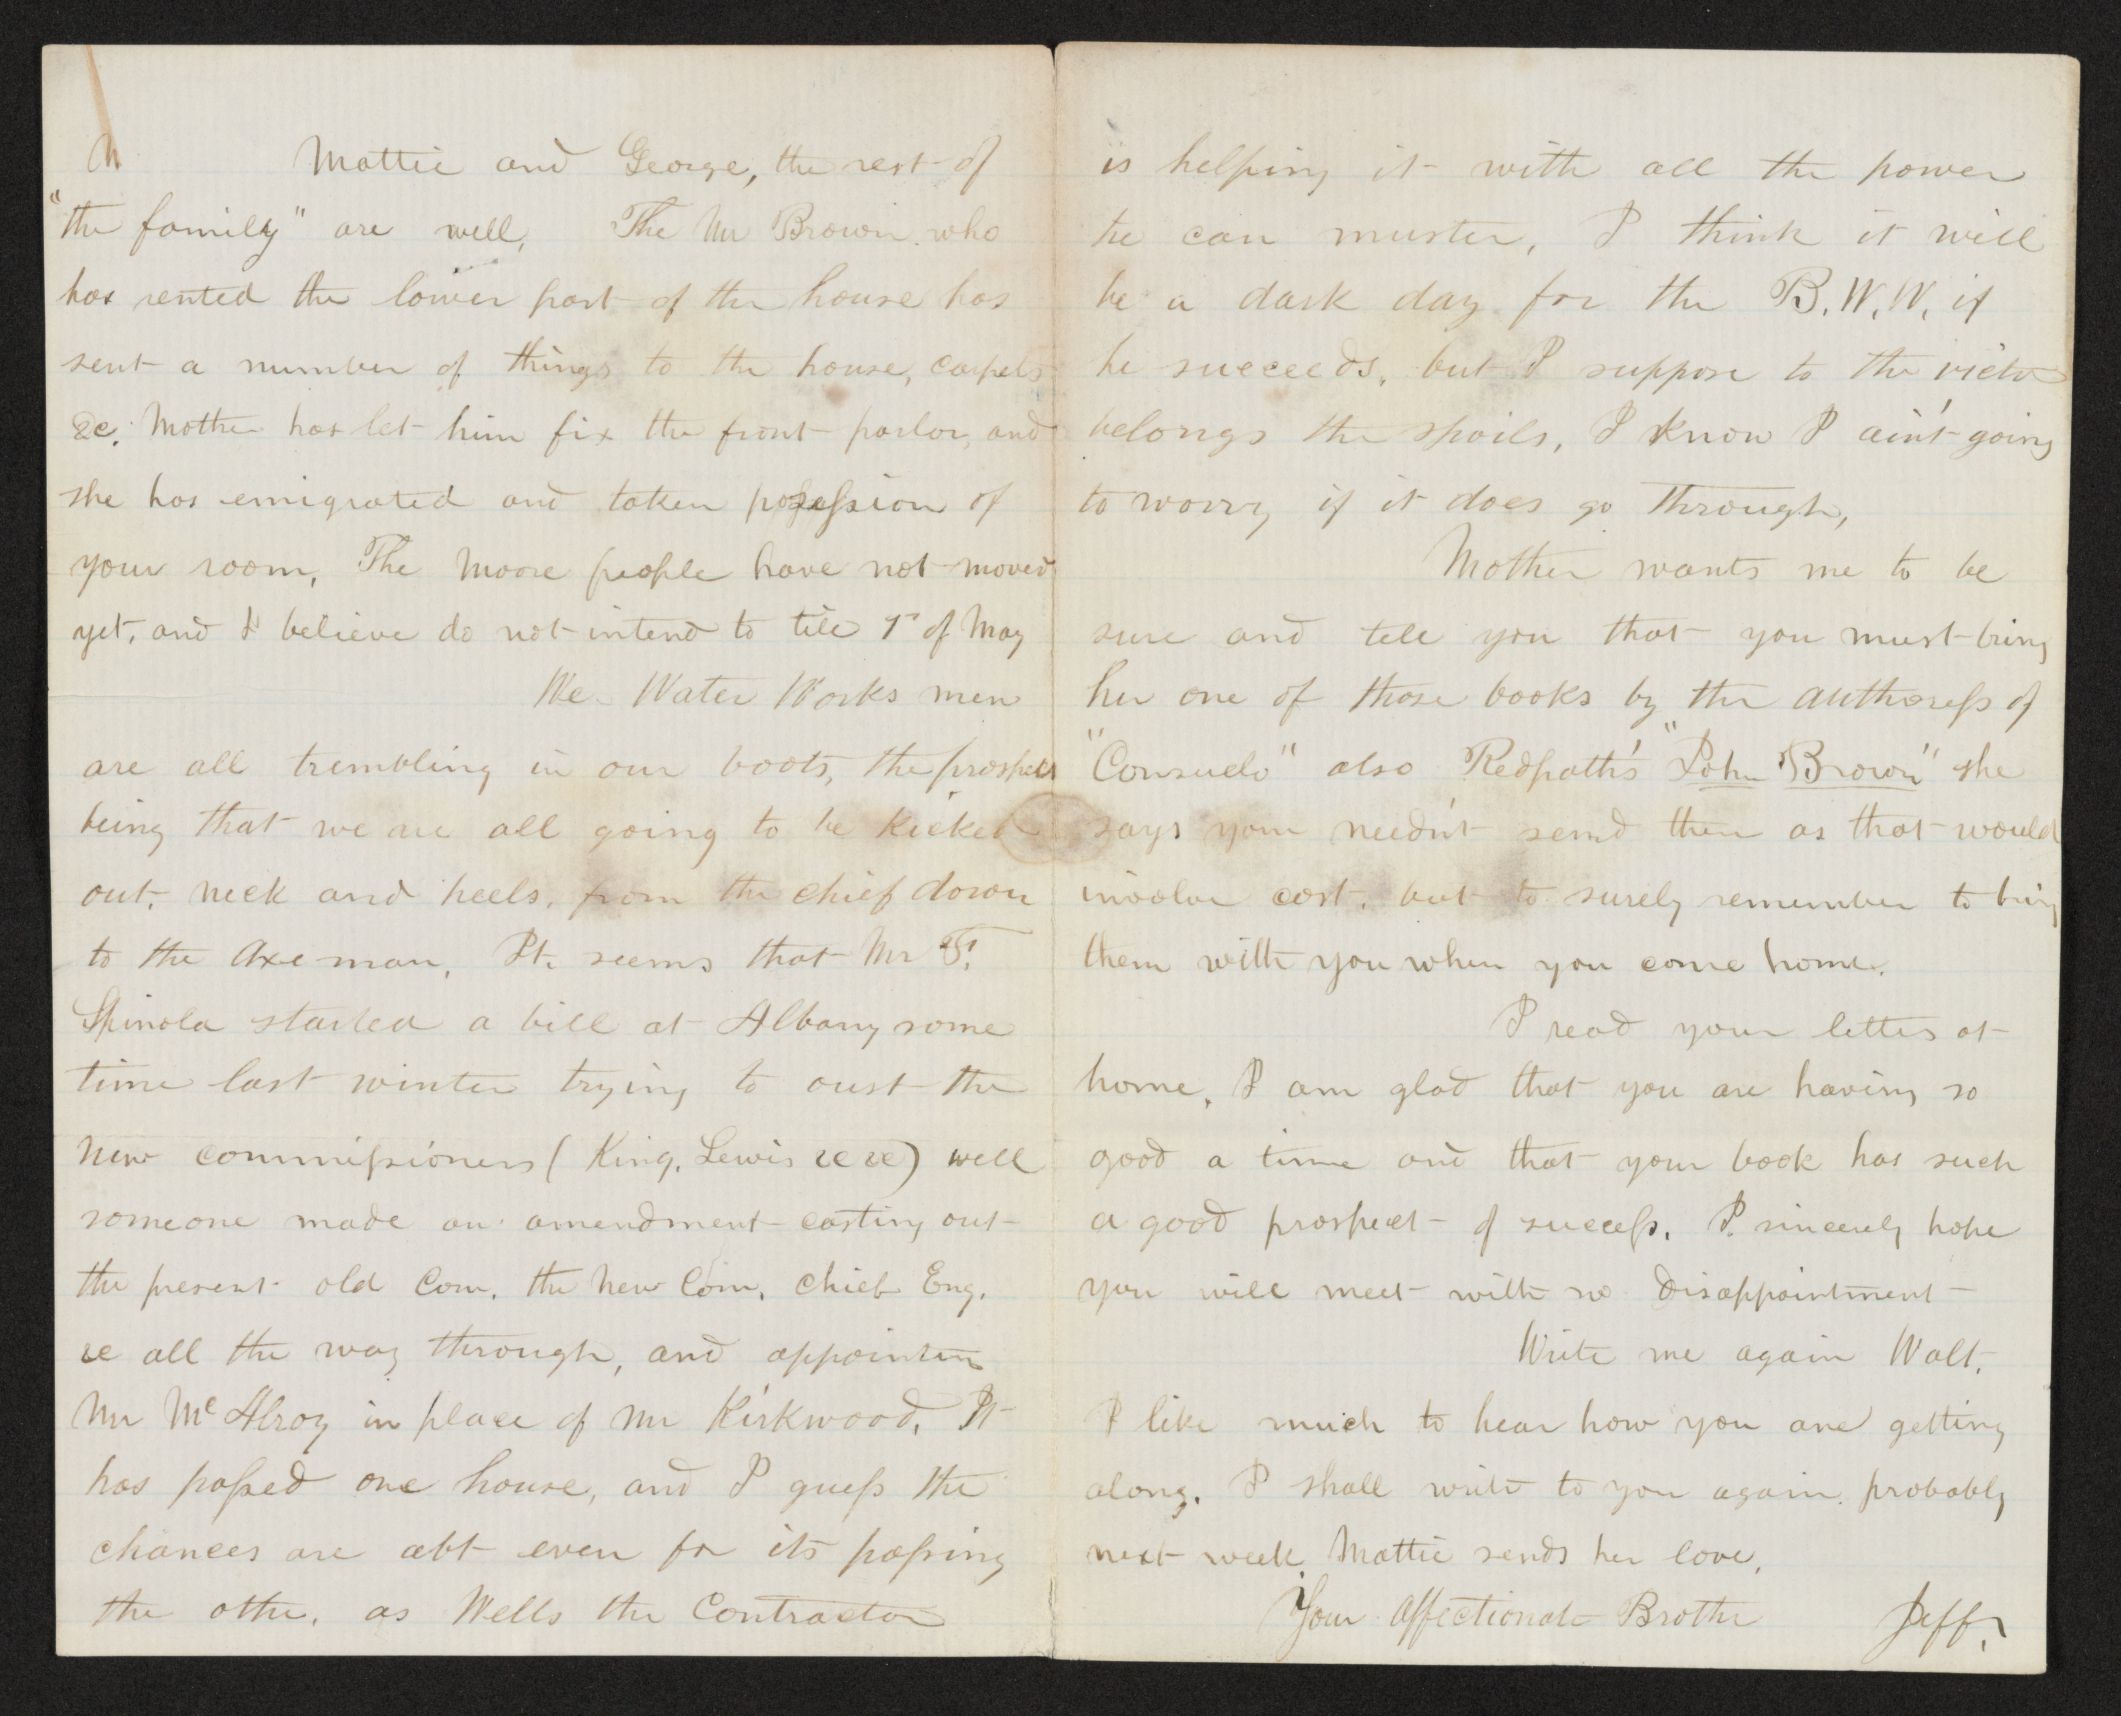 Mattie and George, the rest of
"the family" are well, The Mr Brown who
has rented the lower part of the house has
sent a number of things to the house, carpets
&c. Mother has let him fix the front parlor, and
she has emigrated and taken possession of
your room, The Moore people have not moved
yet, and I believe do not intend to till 1st of May
We Water Works men
are all trembling in our boots, the prospect
being that we are all going to be kicked
out, neck and heels, from the chief down
to the Axe man, It seems that Mr F.
Spinola started a bill at Albany some
time last winter trying to oust the
new commissioners (King, Lewis &c &c) well
someone made an amendment casting out
the present old Com. the new Com. Chief Eng.
&c all the way through, and appointing
Mr McAlroy in place of Mr Kirkwood, It
has passed one house, and I guess the
chances are abt even for its passing
the other, as Wells the Contractor
is helping it with all the power
he can muster, I think it will
be a dark day for the B. W. W. if
he succeeds, but I suppose to the victor
belongs the spoils, I know I ain't going
to worry if it does go through,
Mother wants me to be
sure and tell you that you must bring
her one of those books by the authoress of
"Consuelo" also Redpath's "John Brown" she
says you need'nt send them as that would
involve cost, but to surely remember to bring
them with you when you come home.
I read your letter at
home, I am glad that you are having so
good a time and that your book has such
a good prospect of success, I sincerely hope
you will meet with no disappointment
Write me again Walt.
I like much to hear how you are getting
along. I shall write to you again probably
next week, Mattie sends her love,
Your Affectionate Brother Jeff,